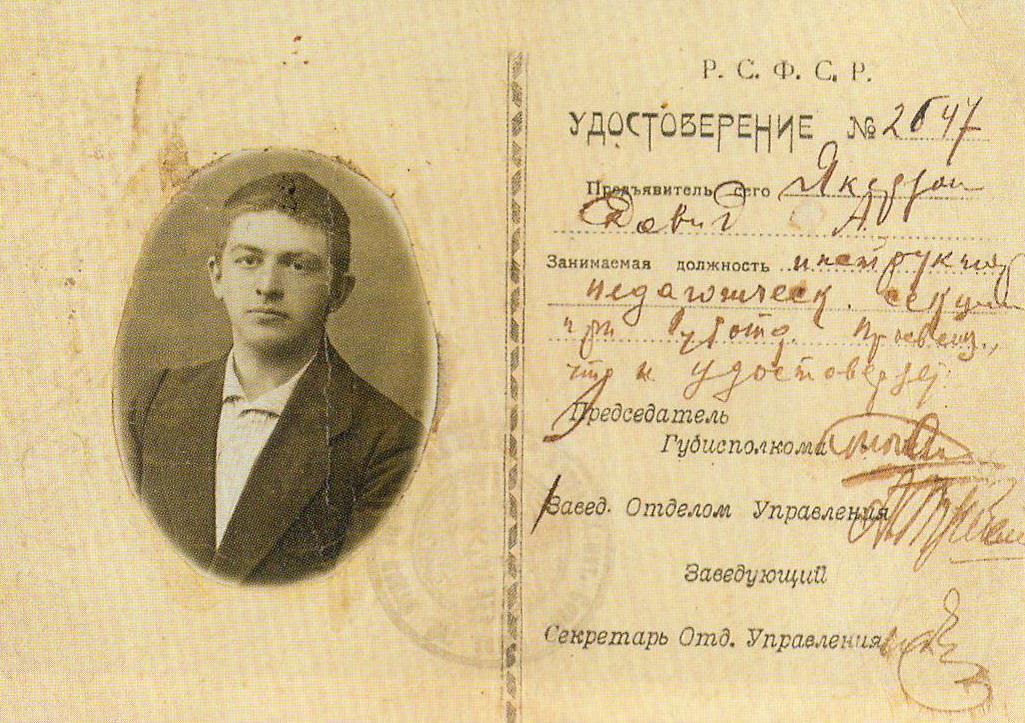 Р. С. Ф. С. Р.
УДОСТОВЕРЕНИЕ № 2647
Предъявитель сего Якерсон
Давид А.
Занимаемая должность инструктор
педагогическ. секции
при губотд. просвещ.,
что и удостоверяю
Председатель
Губисполкома
Завед. Отделом Управления
Заведующий
Секретарь Отд. Управления